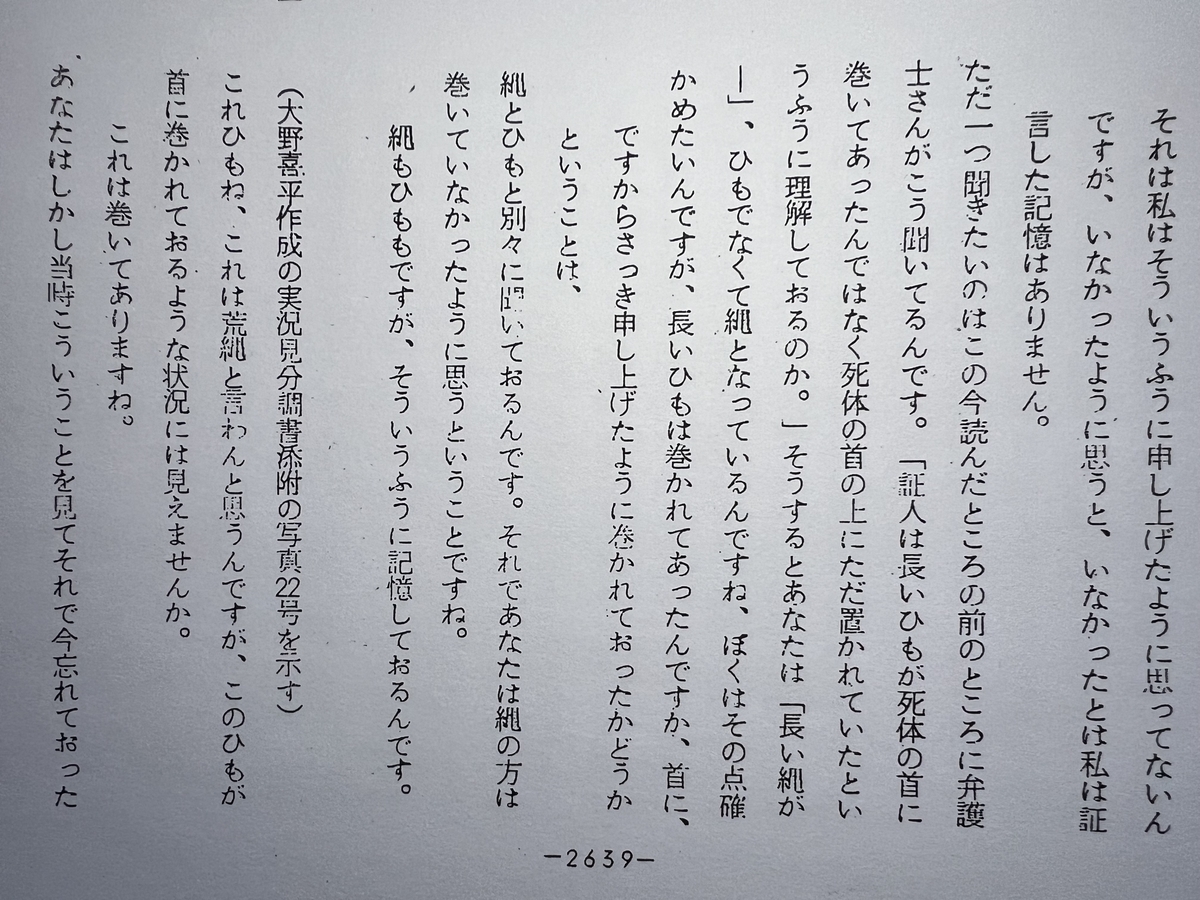 それは私はそういうふうに申し上げたように思ってないん
ですが、いなかったように思うと、いなかったとは私は証
言した記憶はありません。
ただ一つ聞きたいのはこの今読んだところの前のところに弁護
士さんがこう聞いてるんです。「証人は長いひもが死体の首に
巻いてあったんではなく死体の首の上にただ置かれていたとい
うふうに理解しておるのか。」そうするとあなたは「長い縄が
ー」、ひもでなくて縄となっているんですね、ぼくはその点確
かめたいんですが、長いひもは巻かれてあったんですか、首に、
ですからさっき申し上げたように巻かれておったかどうか
ということは、
縄とひもと別々に聞いておるんです。それであなたは縄の方は
巻いていなかったように思うということですね。
縄もひももですが、そういうふうに記憶しておるんです。
（大野喜平作成の実況見分調書添附の写真22号を示す）
これひもね、これは荒縄と言わんと思うんですが、このひもが
首に巻かれておるような状況には見えませんか。
これは巻いてありますね。
あなたはしかし当時こういうことを見てそれで今忘れておった
－2639－